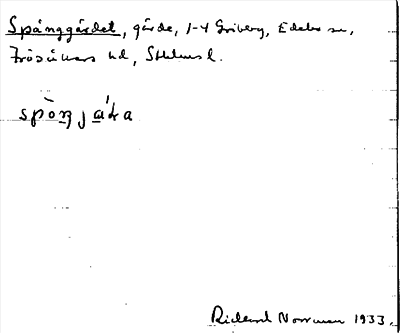 Spånggärdet, gärde, 1-4 Griberg, Edebo sn,
Frösåkers hd, Sthlms l.
spò̱ŋjá̱ḍa
Rickard Norrman 1933.